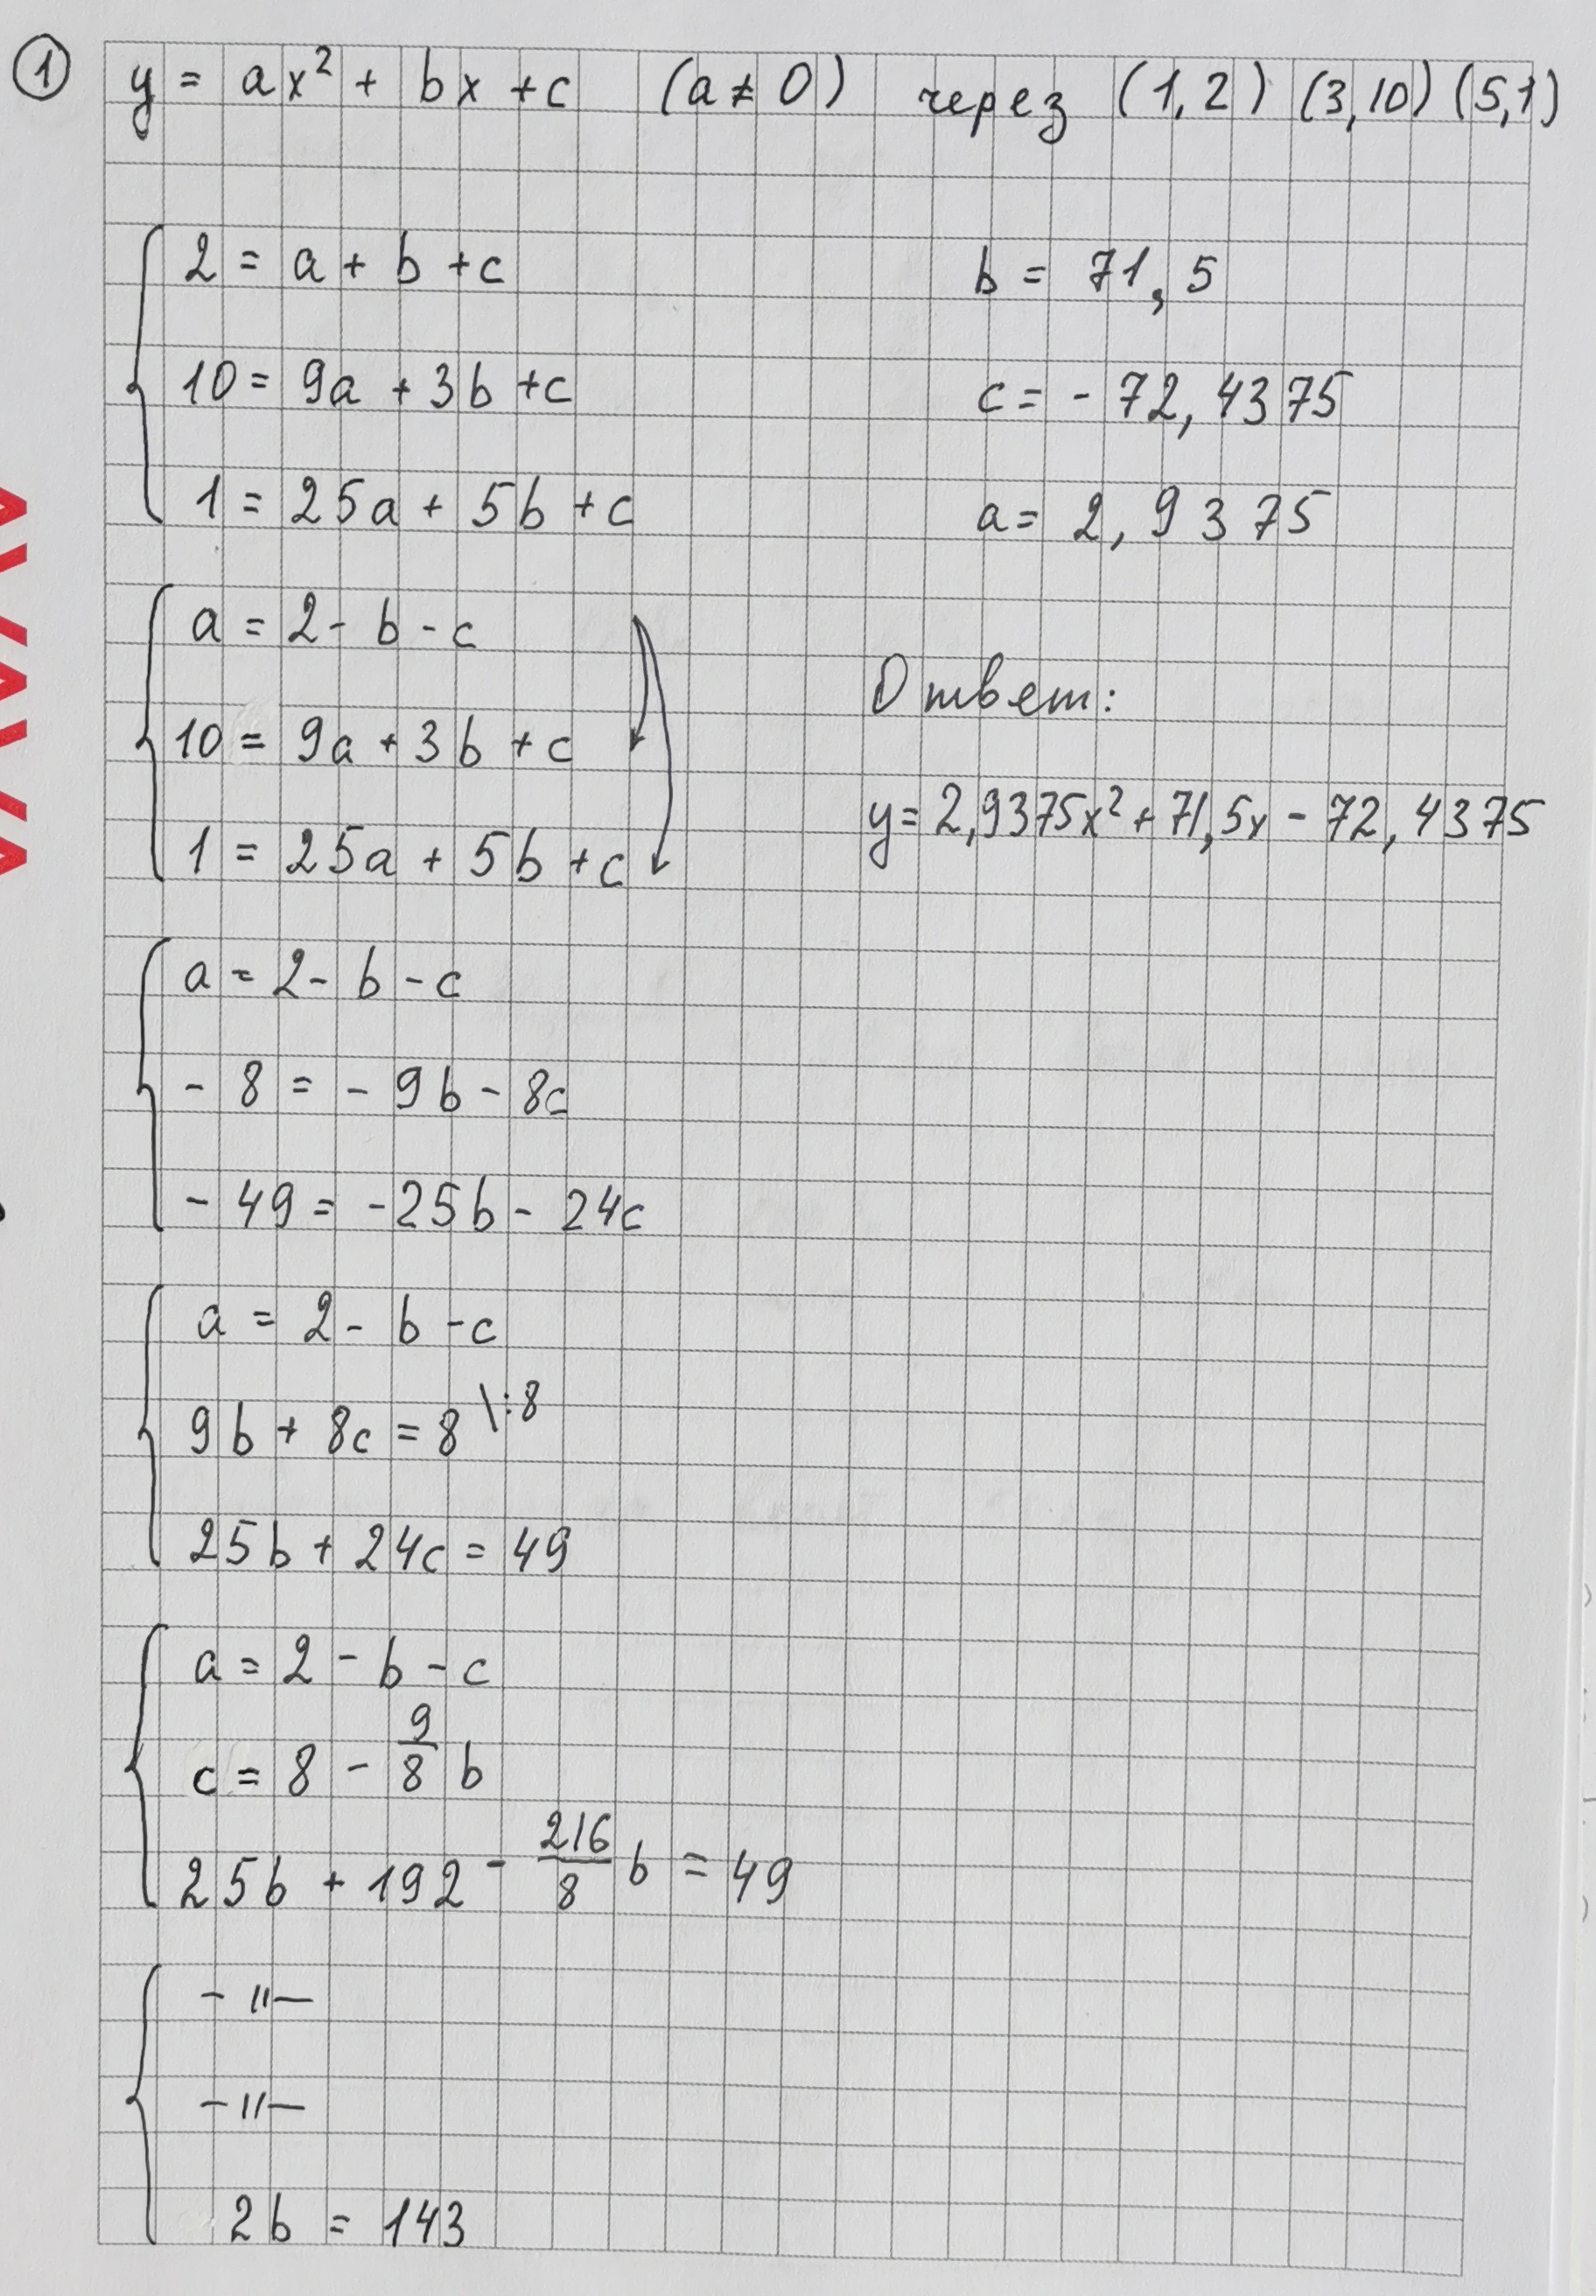 ① y = ax² + bx + c (a ≠ 0) через (1, 2) (3, 10) (5, 1)
2 = a + b + c
10 = 9a + 3b + c
1 = 25a + 5b + c
a = 2 - b - c
10 = 9a + 3b + c
1 = 25a + 5b + c
a = 2 - b - c
- 8 = - 9b - 8c
- 49 = -25b - 24c
a = 2 - b - c
9b + 8c = 8 \:8
25b + 24c = 49
a = 2 - b - c
c = 8 - 9/8 b
25b + 192 - 216/8 b = 49
- " -
- " -
2b = 143
b = 71,5
c = - 72,4375
a = 2,9375
Ответ:
y = 2,9375x² + 71,5x - 72,4375